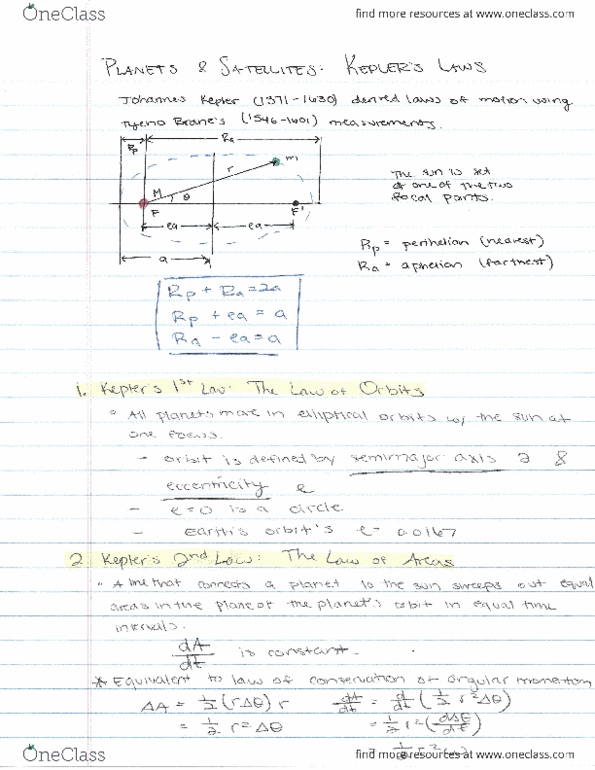 OneClass
find more resources at www.oneclass.com
PLANETS & SATELLITES: KEPLER'S LAWS
Johannes Kepler (1371-1630) derived laws of motion using
Tycho Brahe's (1546-1601) measurements.
Rp
Ra
m
r
M
θ
F
F'
ea
ea
a
The sun is set
at one of the two
focal points.
Rp = perihelion (nearest)
Ra = aphelion (farthest)
Rp + Ra = 2a
Rp + ea = a
Ra - ea = a
1. Kepler's 1st Law: The Law of Orbits
° All planets move in elliptical orbits w/ the sun at
one focus.
- orbit is defined by semimajor axis a &
eccentricity e
- e=0 is a circle
- Earth's orbit's e= 0.0167
2. Kepler's 2nd Law: The Law of Areas
° A line that connects a planet to the sun sweeps out equal
areas in the plane of the planet's orbit in equal time
intervals.
dA/dt is constant.
* Equivalent to law of conservation of angular momentum
ΔA = 1/2 (rΔθ) r dA/dt = d/dt (1/2 r²Δθ)
= 1/2 r²Δθ = 1/2 r² (dΔθ/dt)
OneClass
find more resources at www.oneclass.com